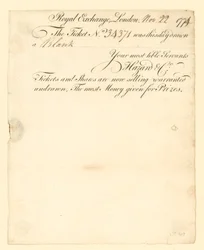 Royal Exchange, London, Nov. 22 1774
The Ticket No. 34,371 was this day drawn
a Blank
Your most hble Servants
Hazard & Co.
Tickets and Shares are now selling warranted
undrawn. The most Money given for Prizes.